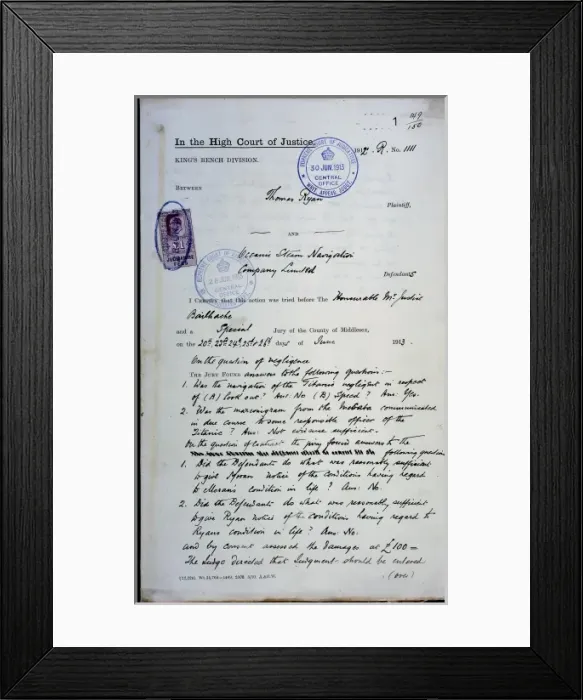 1
In the High Court of Justice.
1912. R. No. 1111
KING'S BENCH DIVISION.
SUPREME COURT OF JUDICATURE
30 JUN. 1913
CENTRAL
OFFICE
BETWEEN
Thomas Ryan
Plaintiff,
AND
£1
Oceanic Steam Navigation
Company Limited
Defendants
CENTRAL
OFFICE
I CERTIFY that this action was tried before The Honourable Mr Justice
Bailhache
and a Special Jury of the County of Middlesex,
on the 20th, 23rd, 24th, 25th & 26th days of June 1913.
On the question of negligence
THE JURY FOUND answers to the following questions:-
1. Was the navigation of the Titanic negligent in respect
of (A) look out? Ans: No (B) Speed? Ans: Yes.
2. Was the marconigram from the Mesaba communicated
in due course to some responsible officer of the
Titanic? Ans: Not evidence sufficient.
On the question of contract the jury found answers to the
following question
1. Did the Defendants do what was reasonably sufficient
to give Moran notice of the conditions having regard
to Moran's condition in life? Ans: No
2. Did the Defendants do what was reasonably sufficient
to give Ryan notice of the conditions having regard to
Ryans condition in life? Ans: No.
and by consent assessed the damages at £100=
The Judge directed that Judgment should be entered
(over)